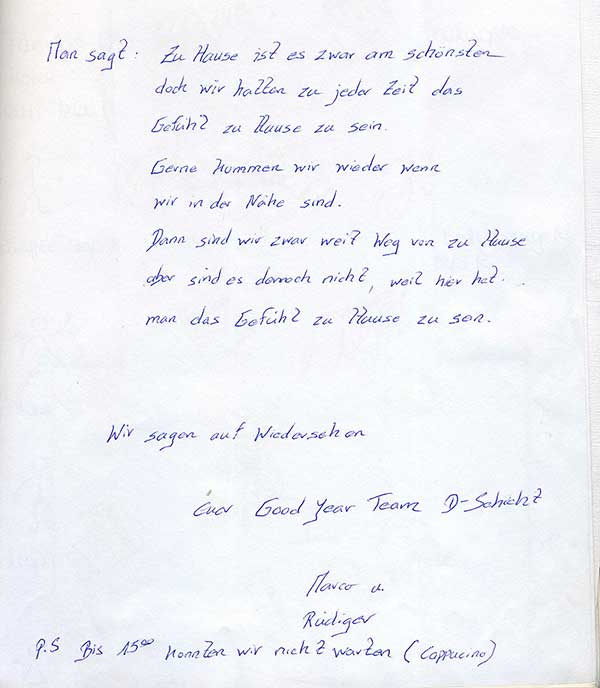 Man sagt: Zu Hause ist es zwar am schönsten
doch wir hatten zu jeder Zeit das
Gefühl zu Hause zu sein.
Gerne kommen wir wieder wenn
wir in der Nähe sind.
Dann sind wir zwar weit Weg von zu Hause
aber sind es dennoch nicht, weil hier hat..
man das Gefühl zu Hause zu sein.
Wir sagen auf Wiedersehen
Euer Good Year Team D-Schicht
Marco u.
Rüdiger
P.S Bis 15⁰⁰ konnten wir nicht warten (Cappucino)